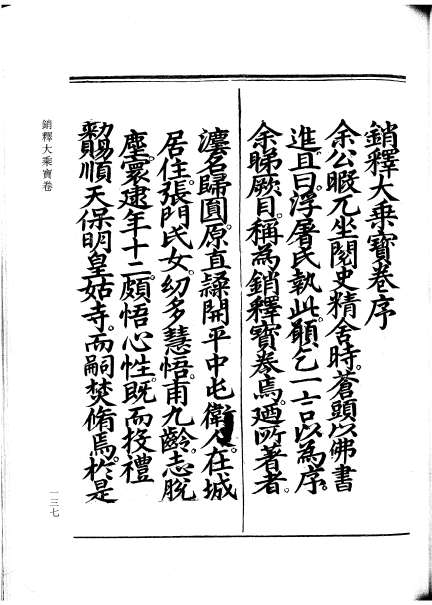 銷釋大乘寶卷序
余公暇兀坐閱史精舍時。蒼頭以佛書
進且曰。浮屠氏執此。願乞一言以為序。
余睇厥目。稱為銷釋寶卷焉。廼所著者。
瀍名歸圓。原直隸開平中屯衛人。在城
居住。張門氏女。幼多慧悟。甫九齡。志脫
塵寰。建年十二。頗悟心性。既而投禮
勅賜順天保明皇姑寺。而嗣焚脩焉。於是
銷釋大乘寶卷
一三七